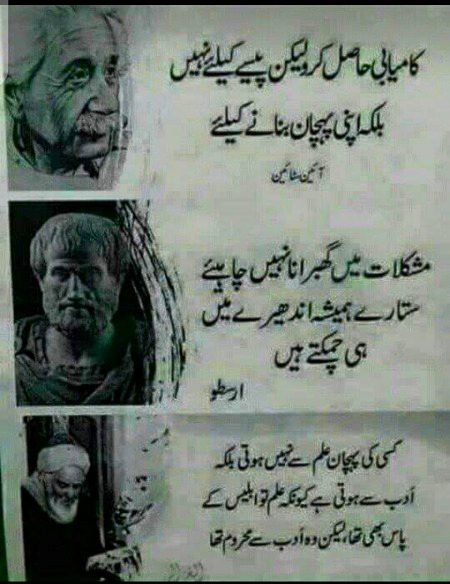 کامیابی حاصل کرو لیکن پیسے کیلئے نہیں
بلکہ اپنی پہچان بنانے کیلئے
آئین سٹائین
مشکلات میں گھبرانا نہیں چاہئے
ستارے ہمیشہ اندھیرے میں
ہی چمکتے ہیں
ارسطو
کسی کی پہچان علم سے نہیں ہوتی بلکہ
اَدب سے ہوتی ہے کیونکہ علم تو ابلیس کے
پاس بھی تھا، لیکن وہ اَدب سے محروم تھا